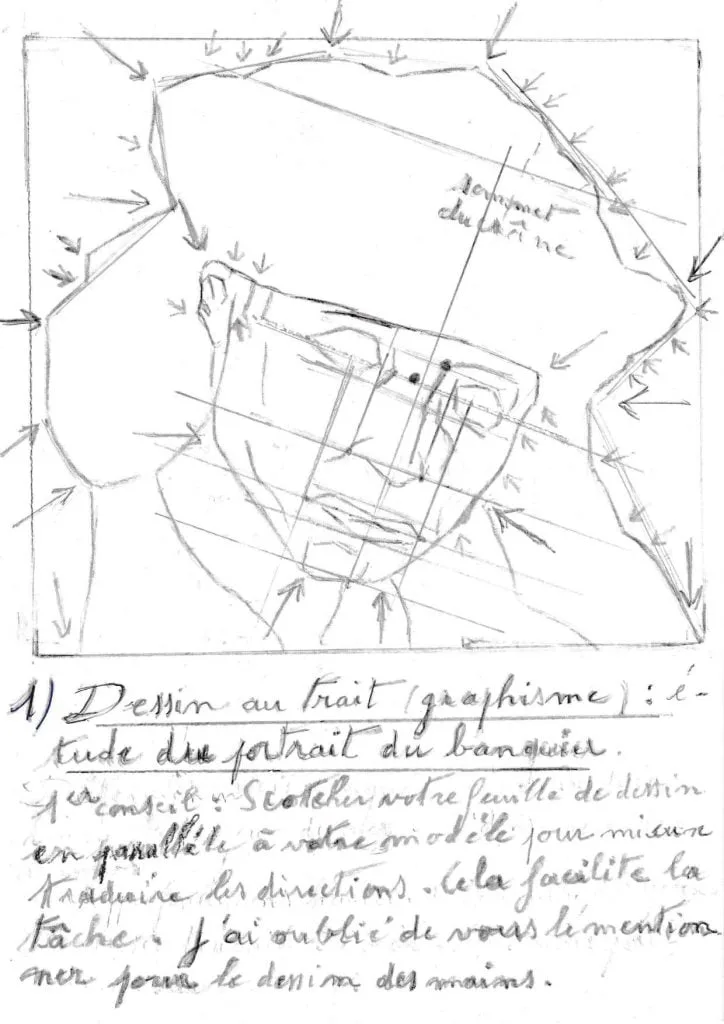 sommet
du crâne
1) Dessin au trait (graphisme) : é-
tude du portrait du banquier.
1er conseil : Scotcher votre feuille de dessin
en parallèle à votre modèle pour mieux
traduire les directions. Cela facilite la
tâche. J'ai oublié de vous le mention
ner pour le dessin des mains.